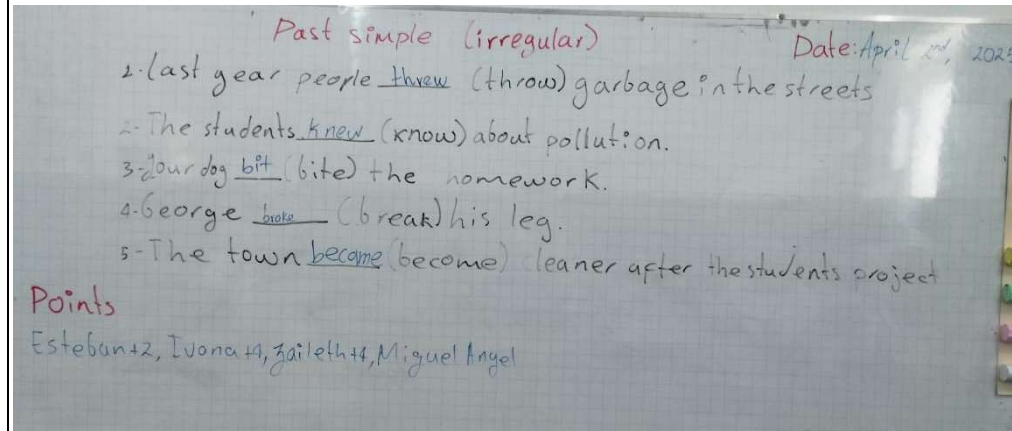 Past simple (irregular)
Date: April 2nd, 2025
1. last year people threw (throw) garbage in the streets
2- The students knew (know) about pollution.
3- Your dog bit (bite) the homework.
4- George broke (break) his leg.
5- The town became (become) cleaner after the students project
Points
Esteban +2, Ivona +1, Zaileth +1, Miguel Angel